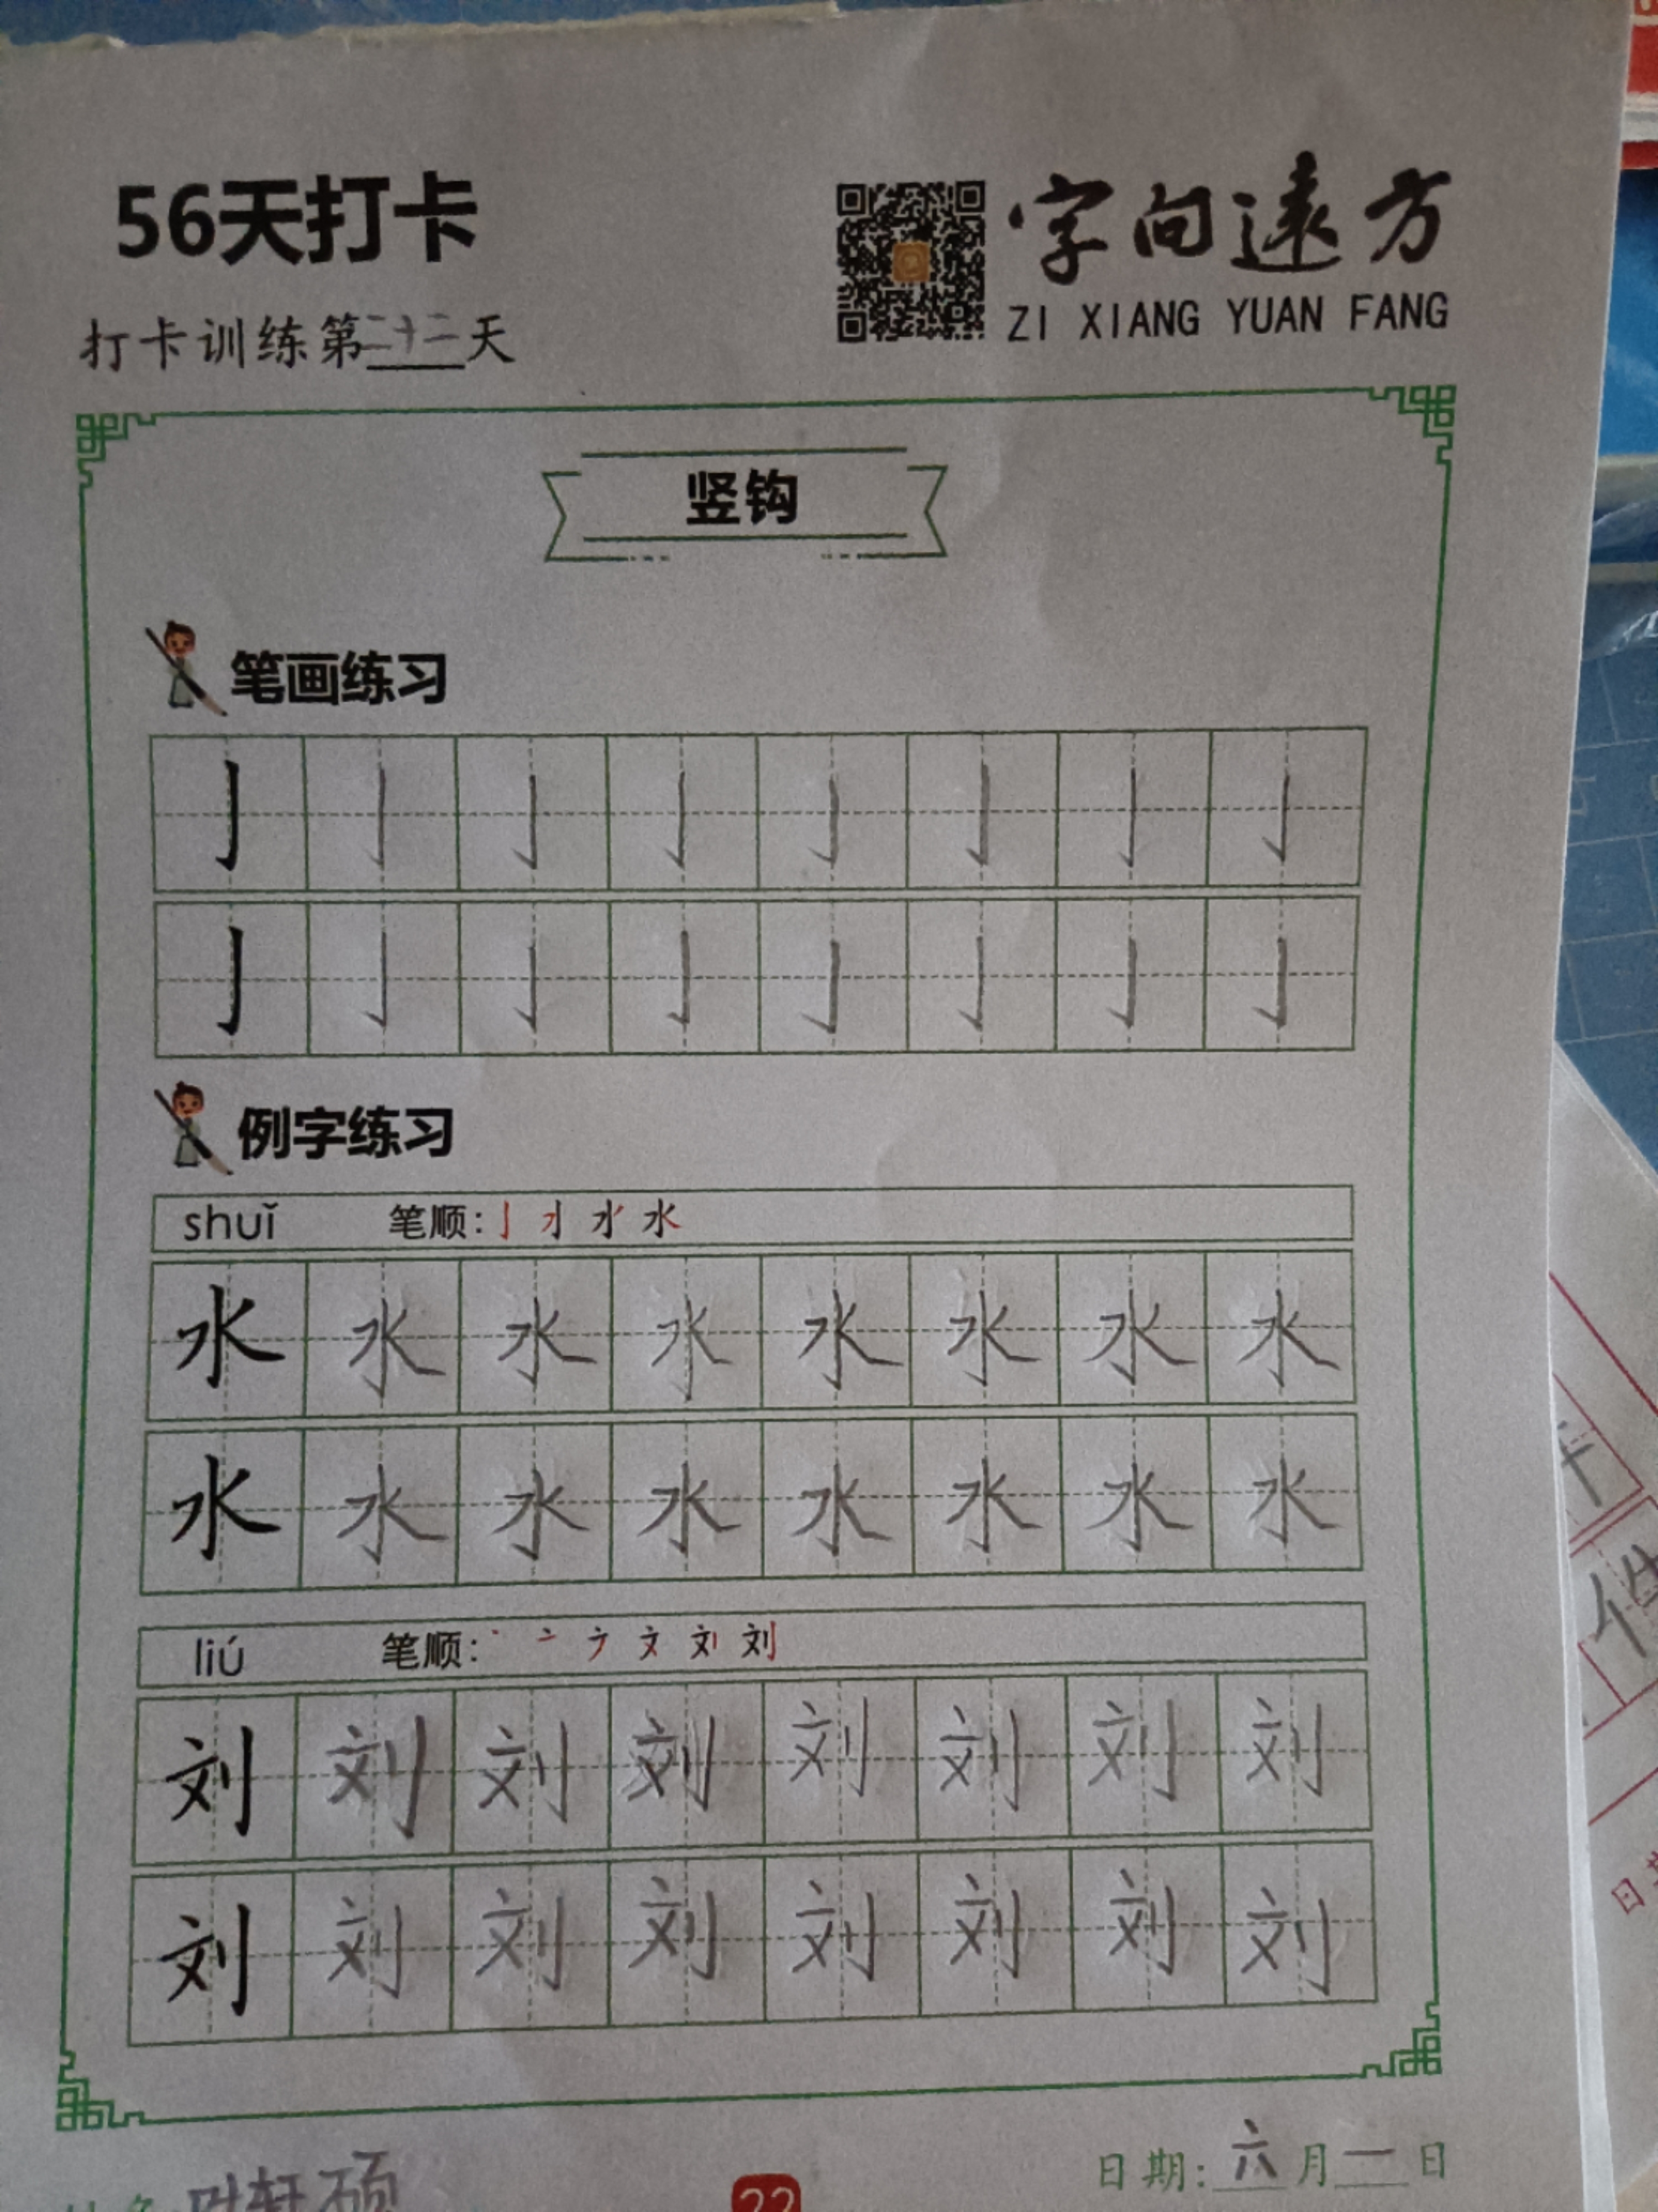 56天打卡
字向遠方
ZI XIANG YUAN FANG
打卡训练第二十二天
竖钩
笔画练习
亅亅亅亅亅亅亅亅
亅亅亅亅亅亅亅亅
例字练习
shuǐ 笔顺: 水
水水水水水水水水
水水水水水水水水
liú 笔顺: 刘
刘刘刘刘刘刘刘刘
刘刘刘刘刘刘刘刘
日期: 六月一日
轩硕
22